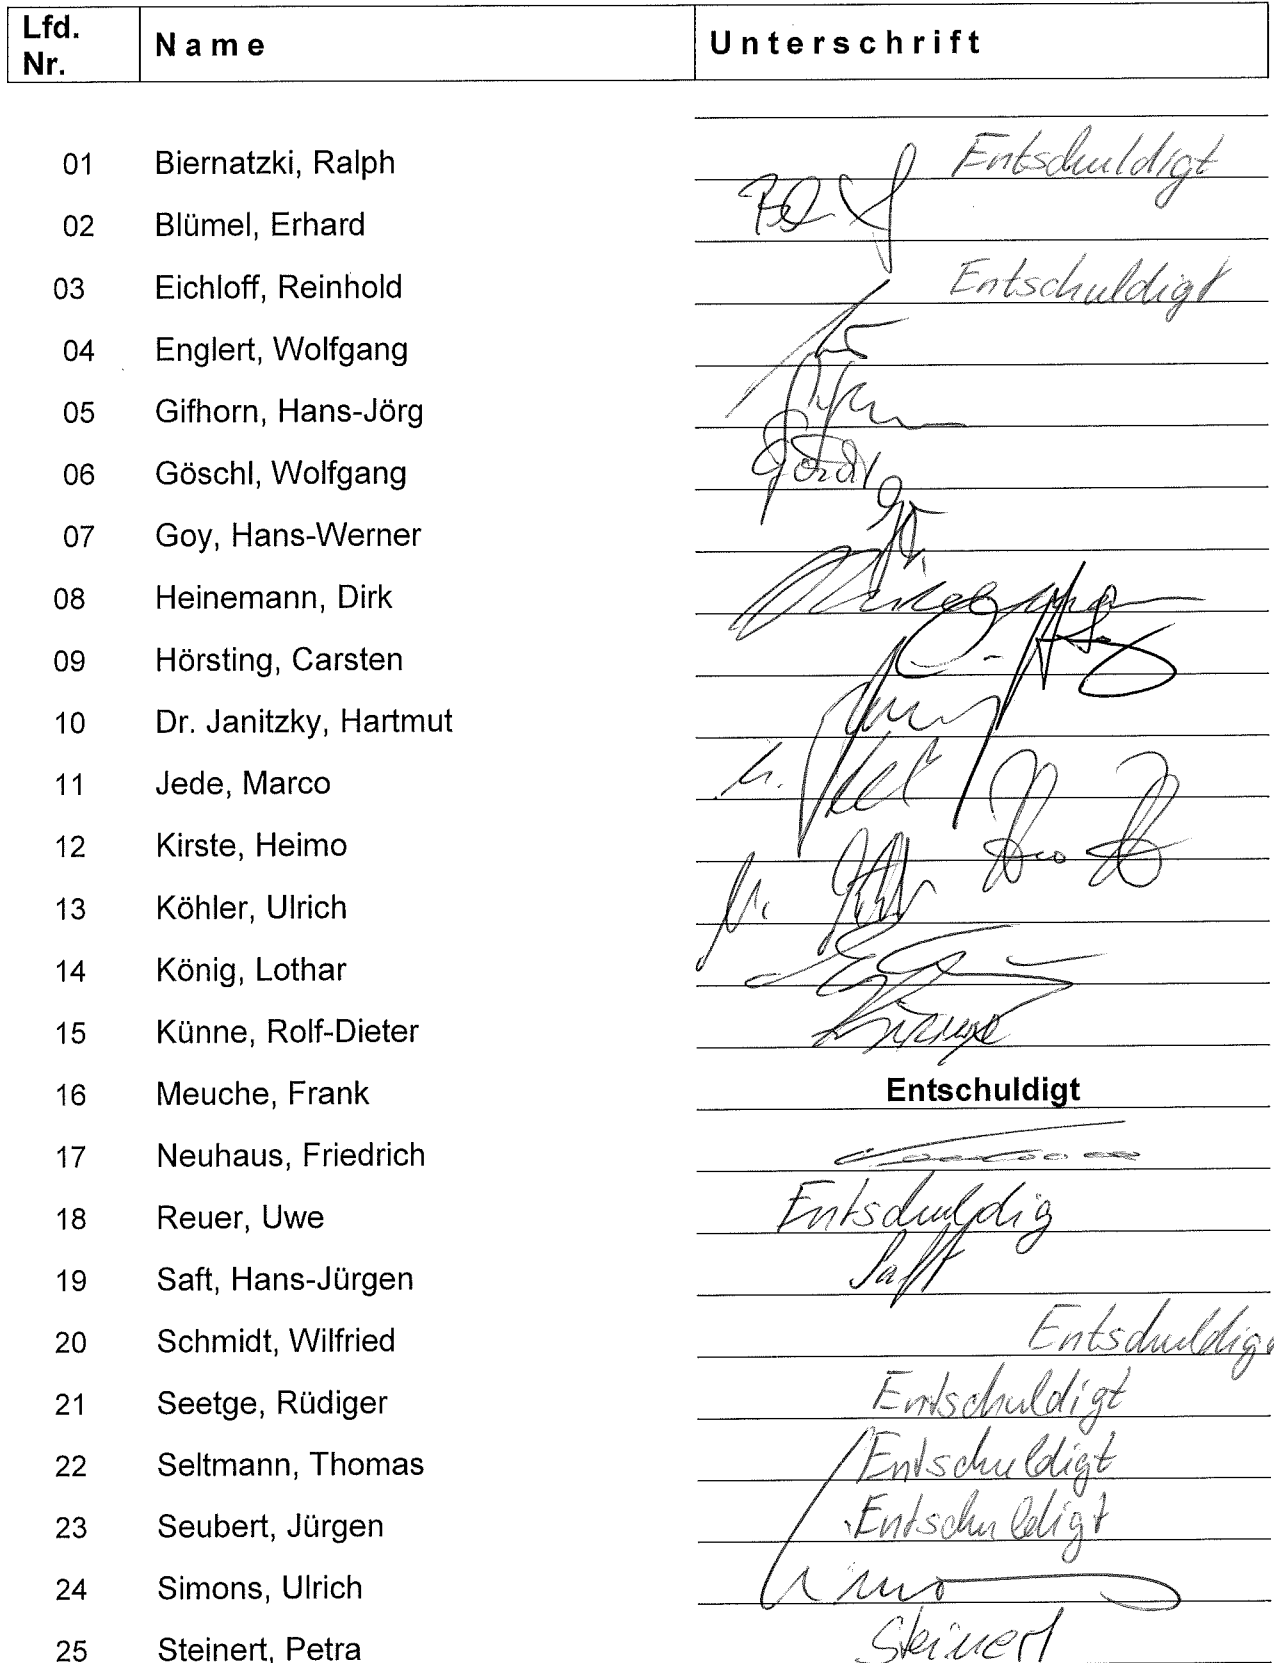 Lfd. Nr. Name Unterschrift
01 Biernatzki, Ralph Entschuldigt
02 Blümel, Erhard
03 Eichloff, Reinhold Entschuldigt
04 Englert, Wolfgang
05 Gifhorn, Hans-Jörg
06 Göschl, Wolfgang
07 Goy, Hans-Werner
08 Heinemann, Dirk
09 Hörsting, Carsten
10 Dr. Janitzky, Hartmut
11 Jede, Marco
12 Kirste, Heimo
13 Köhler, Ulrich
14 König, Lothar
15 Künne, Rolf-Dieter
16 Meuche, Frank Entschuldigt
17 Neuhaus, Friedrich
18 Reuer, Uwe Entschuldig
19 Saft, Hans-Jürgen Saft
20 Schmidt, Wilfried Entschuldigt
21 Seetge, Rüdiger Entschuldigt
22 Seltmann, Thomas Entschuldigt
23 Seubert, Jürgen Entschuldigt
24 Simons, Ulrich
25 Steinert, Petra Steinert